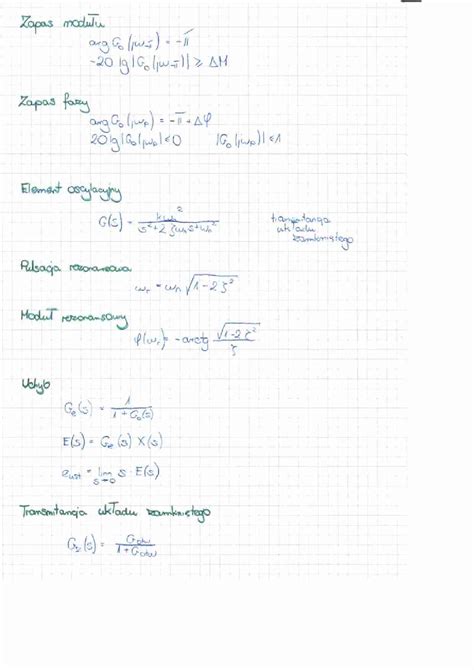 Zapas modułu
arg G₀(jω₋π) = -π
-20 lg |G₀(jω₋π)| ≥ ΔM
Zapas fazy
arg G₀(jωₚ) = -π + Δφ
20 lg |G₀(jωₚ)| < 0    |G₀(jωₚ)| < 1
Element oscylacyjny
G(s) = kωₙ² / (s² + 2ζωₙs + ωₙ²)
transmitancja
układu
zamkniętego
Pulsacja rezonansowa
ωᵣ = ωₙ √(1-2ζ²)
Moduł rezonansowy
φ(ωᵣ) = -arctg √(1-2ζ²) / ζ
Uchyb
Gₑ(s) = 1 / (1+G₀(s))
E(s) = Gₑ(s) X(s)
e_ust = lim s→0 s · E(s)
Transmitancja układu zamkniętego
G_z(s) = G_otw / (1+G_otw)